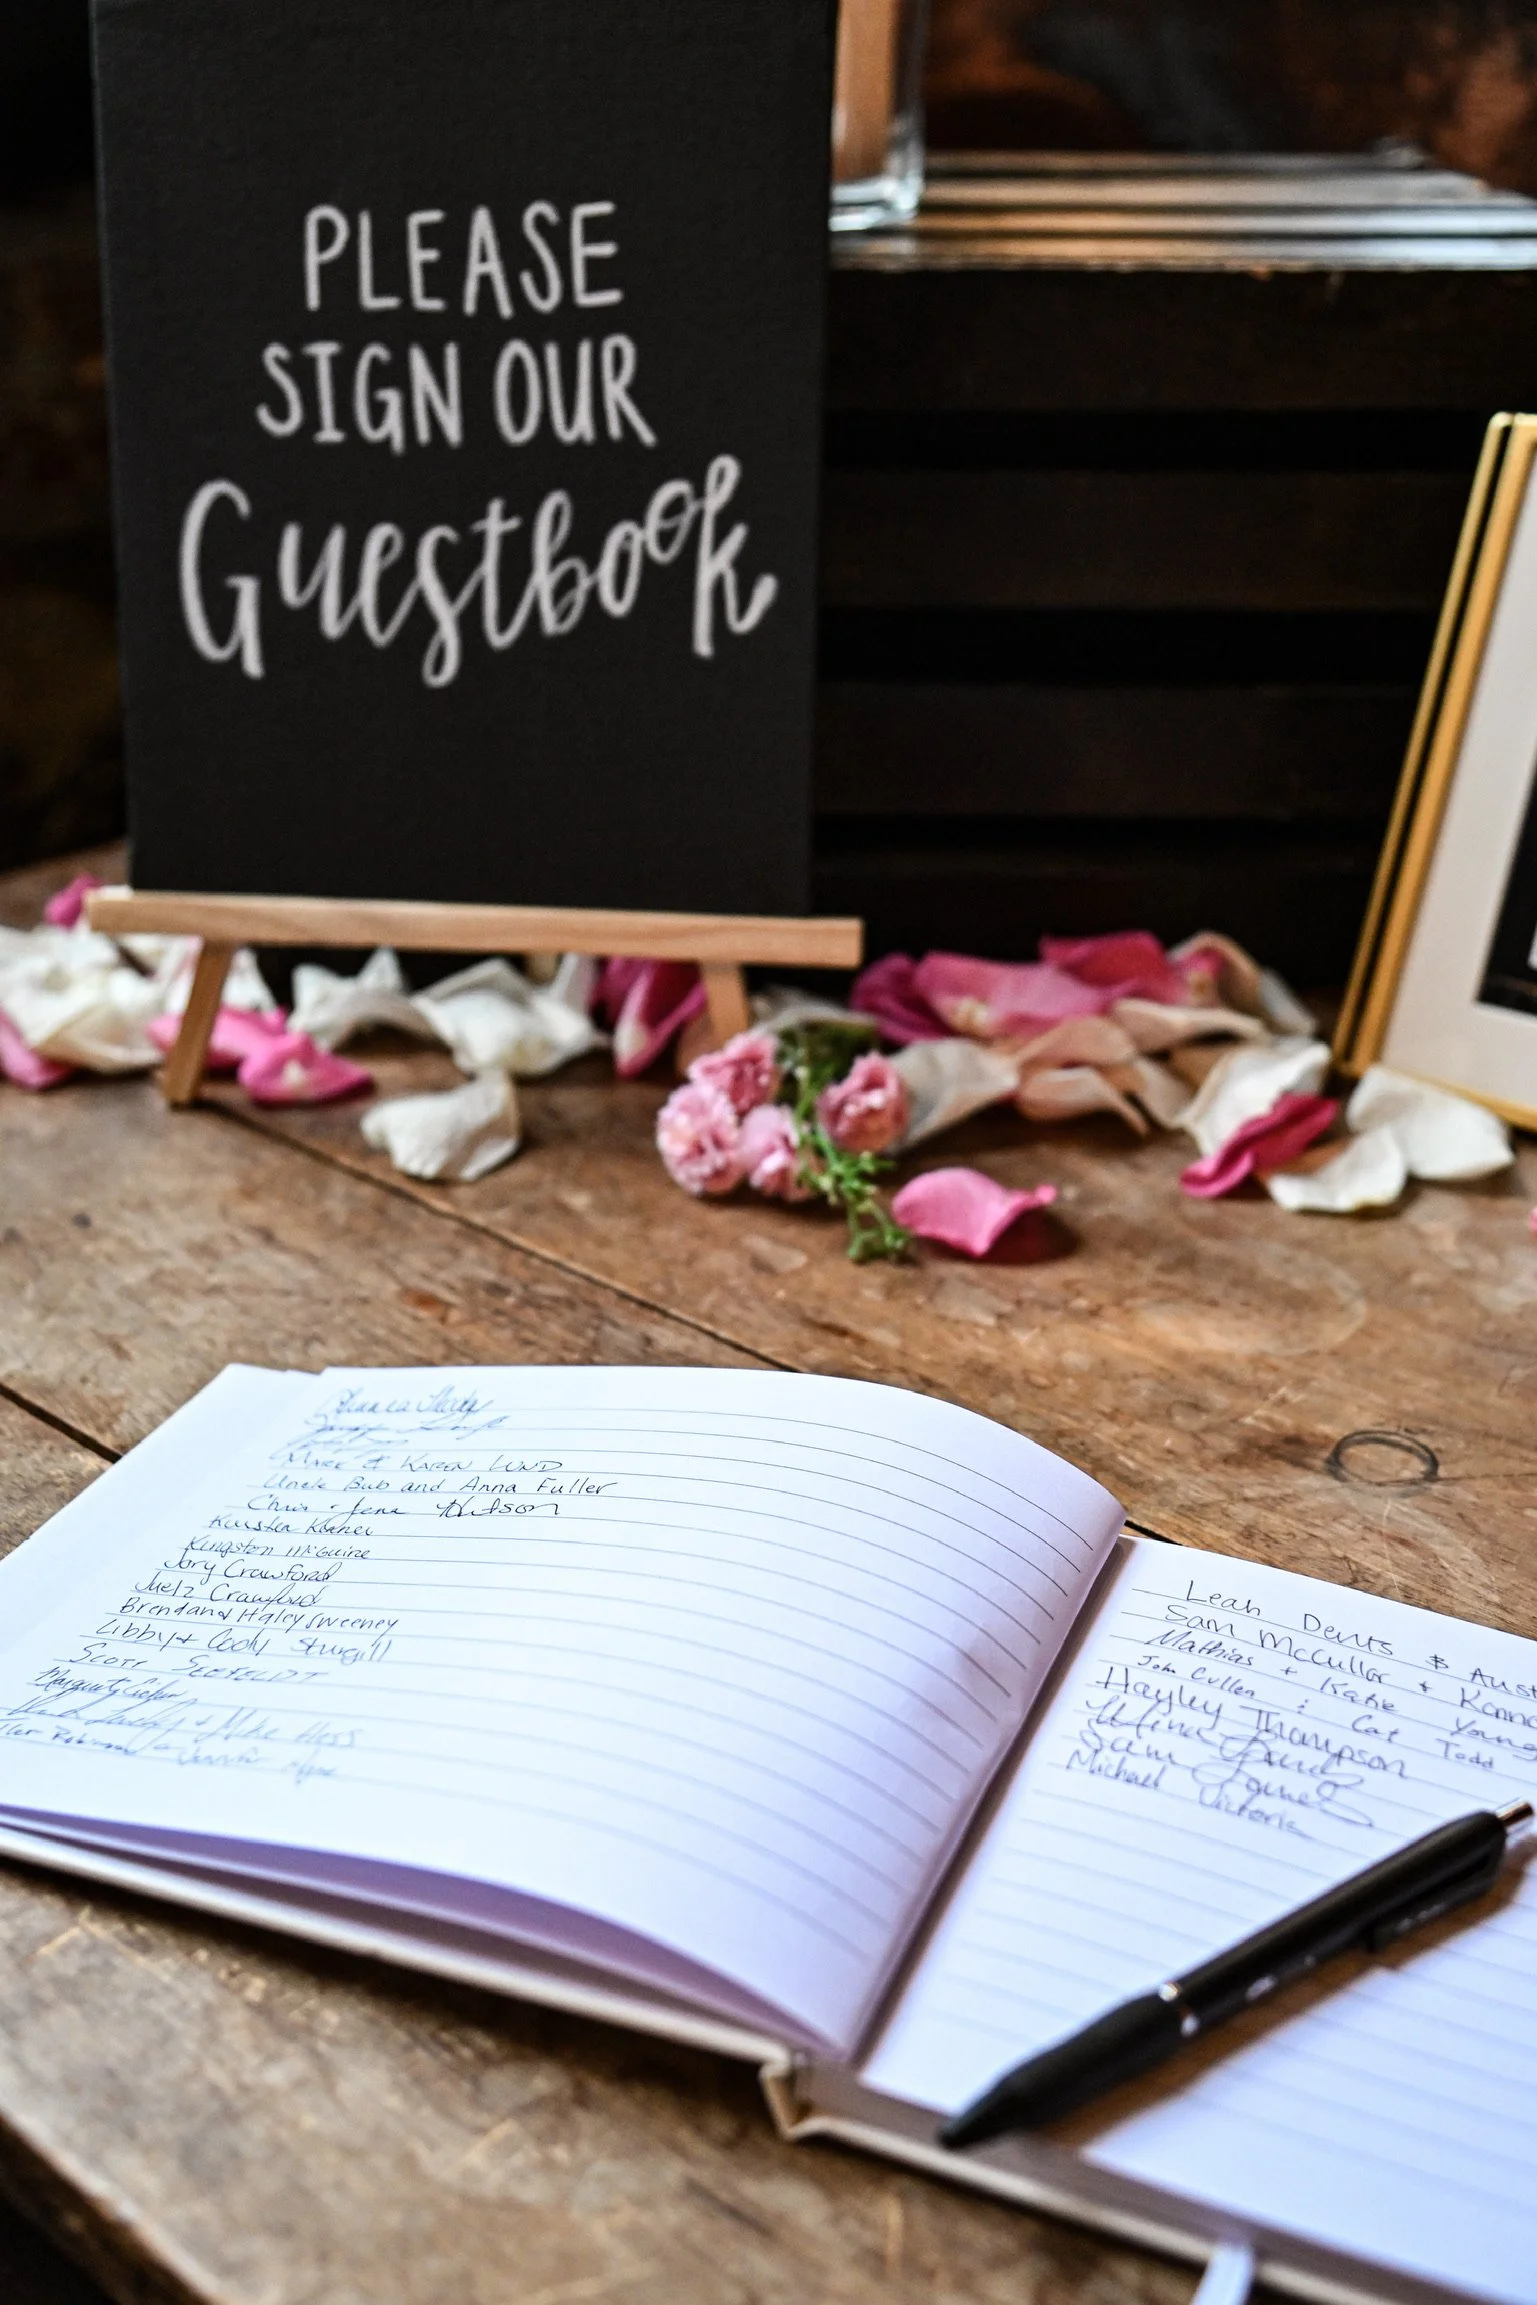 PLEASE
SIGN OUR
Guestbook
MARK & KAREN LUND
Uncle Bub and Anna Fuller
Chris Jena
Kingston McGuire
Jory Crawford
Juelz Crawford
Brendan & Haley Sweeney
Libby + Cody Sturgill
SCOTT SEEFELDT
+ Mike Hess
Leah Dents & Aust
Sam McCullar + Konno
Mathias + Katie Young
John Cullen : Cat Todd
Hayley Thompson
Sam
Michael Victoria